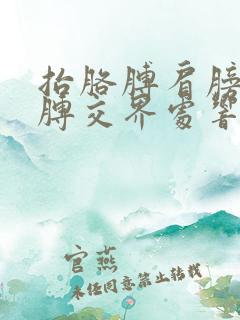 抬胳膊肩膀
膊交界处响
官燕
未经同意禁止转载